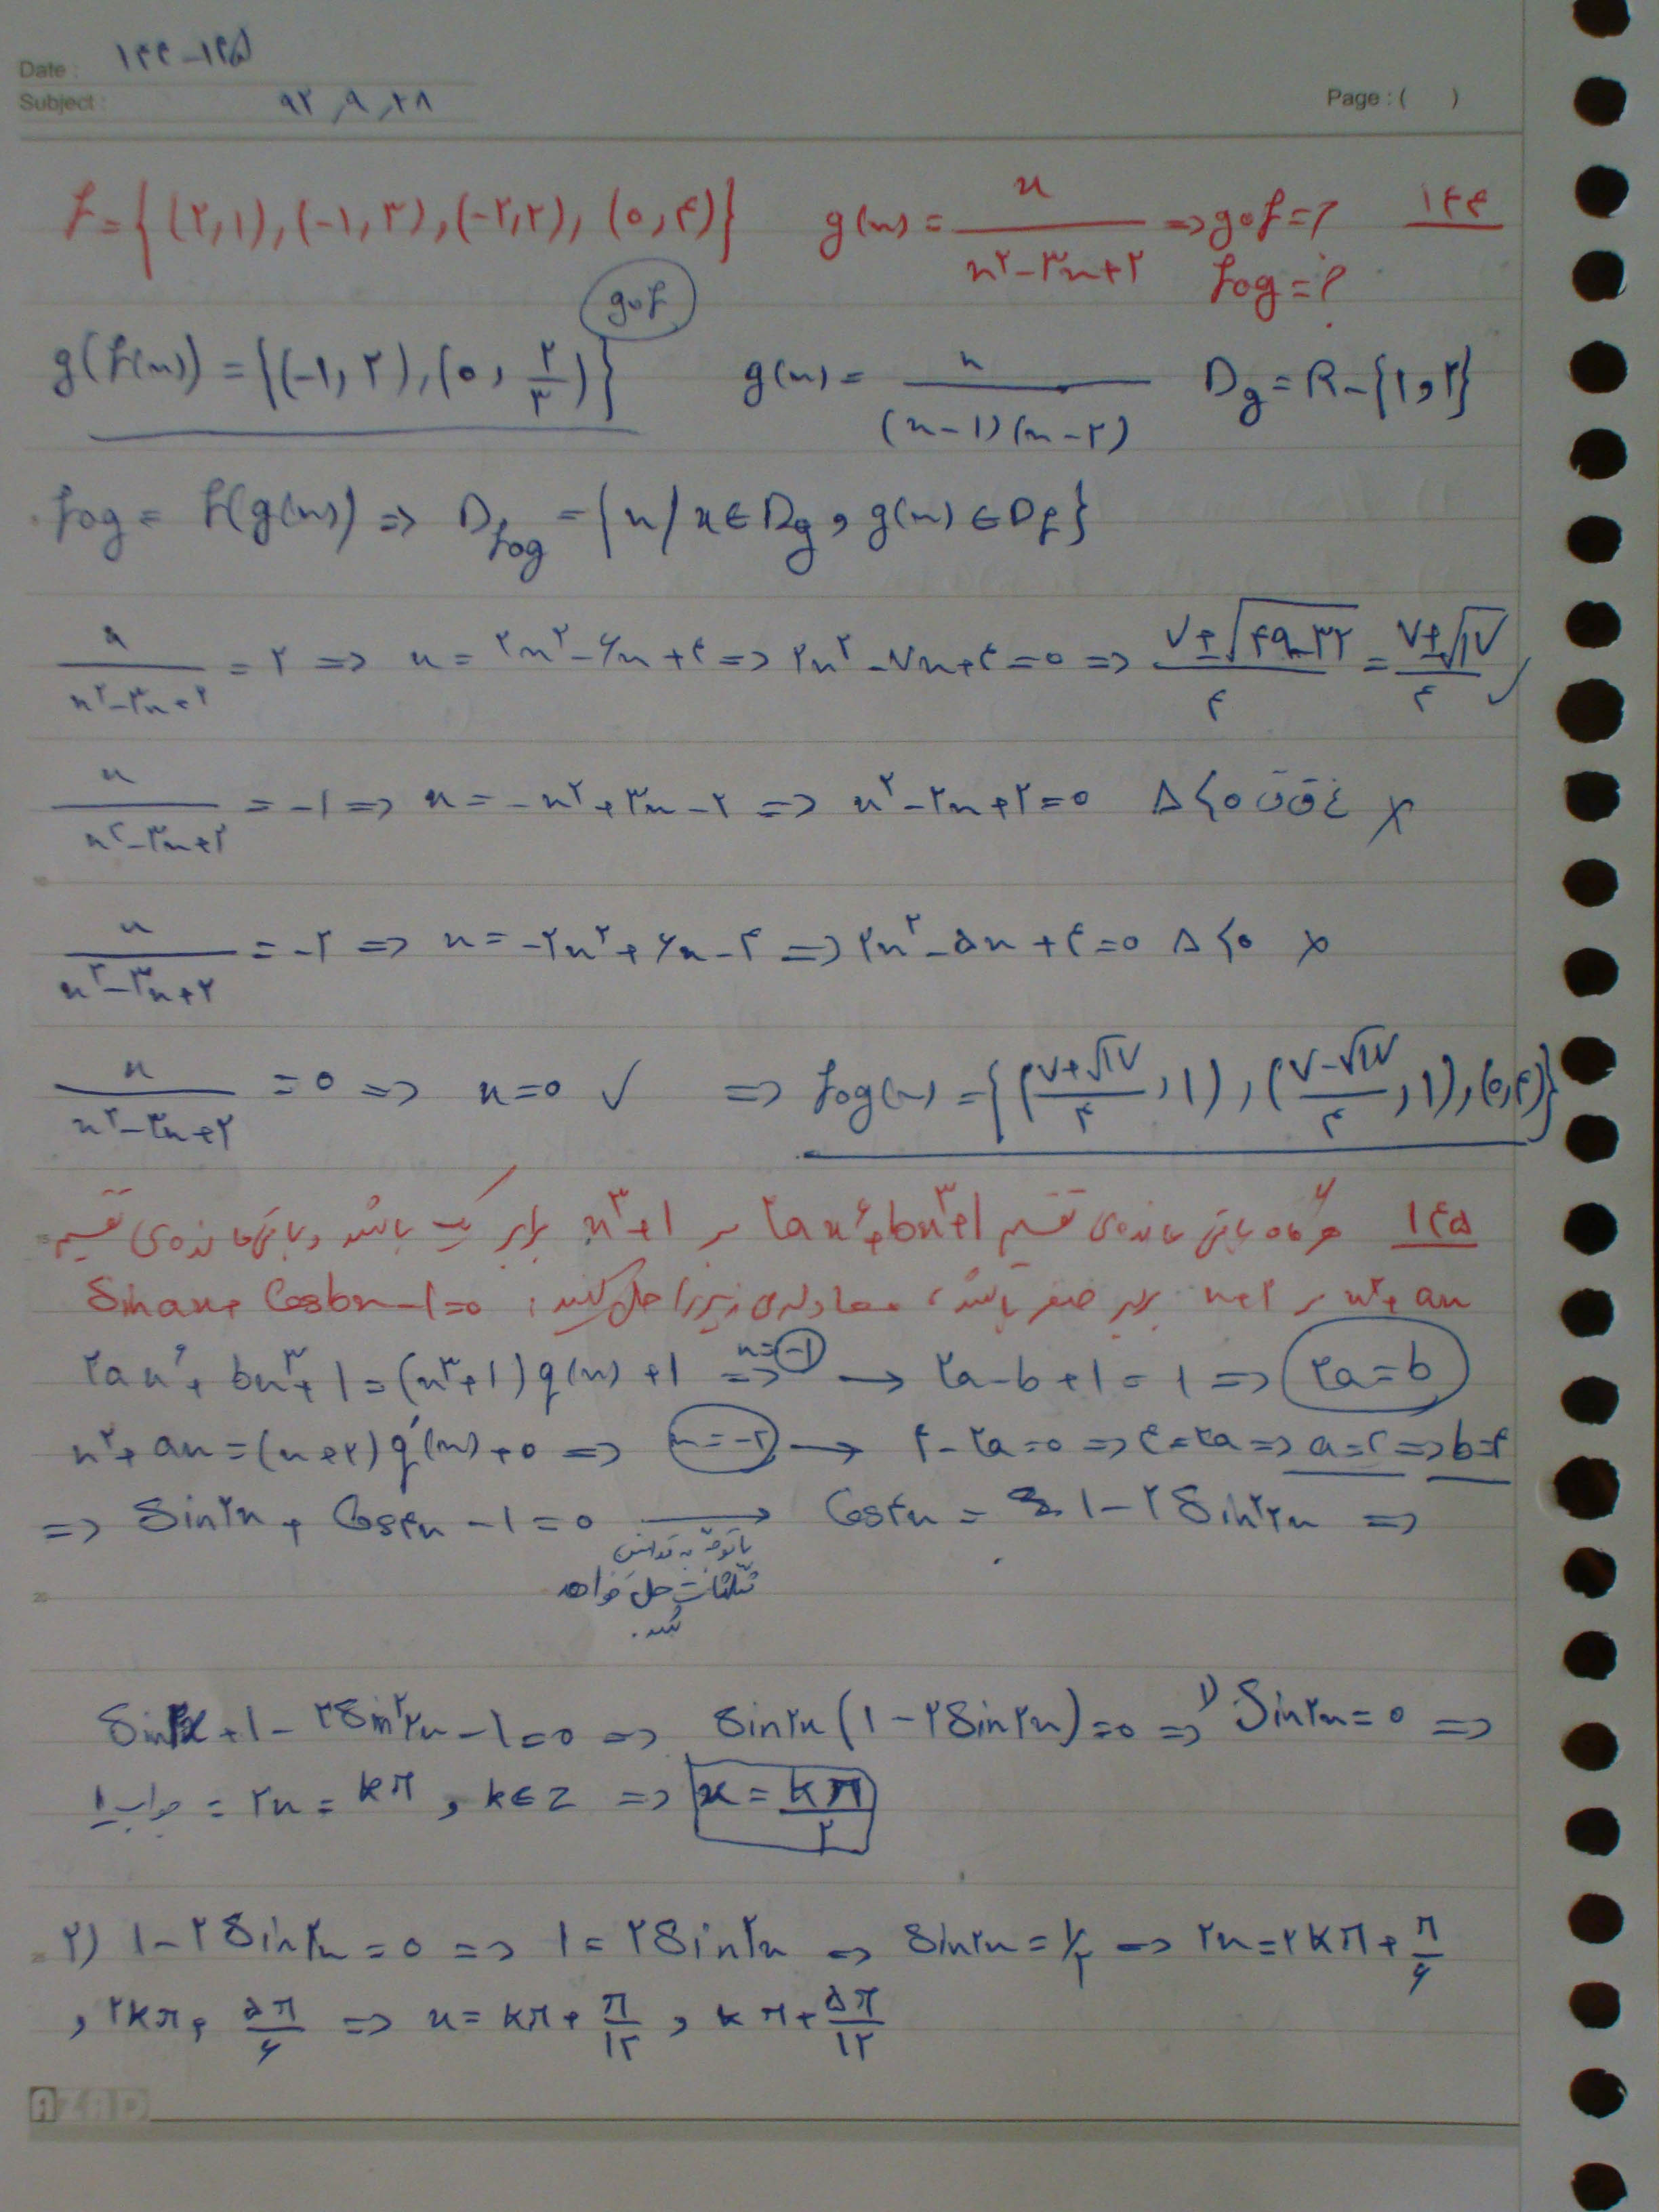 Date: ۱۴۴-۱۴۵
Subject: ۹۲,۹,۲۸ Page: ( )
f = {(۲,۱), (-۱,۳), (-۲,۲), (۰,۴)} g(x) = x / (x^۲ - ۳x + ۲) => gof = ? ۱۴۴
fog = ?
gof
g(f(x)) = {(-۱, ۳/۲), (۰, ۲/۳)} g(x) = x / (x-۱)(x-۲) D_g = R - {۱ و ۲}
fog = f(g(x)) => D_fog = {x / x ∈ D_g و g(x) ∈ D_f}
x / (x^۲ - ۳x + ۲) = ۲ => x = ۲x^۲ - ۶x + ۴ => ۲x^۲ - ۷x + ۴ = ۰ => (۷ ± √(۴۹ - ۳۲)) / ۴ = (۷ ± √۱۷) / ۴ ✓
x / (x^۲ - ۳x + ۲) = -۱ => x = -x^۲ + ۳x - ۲ => x^۲ - ۲x + ۲ = ۰ Δ < ۰ غ ق ق ×
x / (x^۲ - ۳x + ۲) = -۲ => x = -۲x^۲ + ۶x - ۴ => ۲x^۲ - ۵x + ۴ = ۰ Δ < ۰ ×
x / (x^۲ - ۳x + ۲) = ۰ => x = ۰ ✓ => fog(x) = {((۷ + √۱۷)/۴, ۱), ((۷ - √۱۷)/۴, ۱), (۰,۴)}
۱۴۵ هرگاه باقی مانده‌ی تقسیم ۲ax^۶ + bx^۳ + ۱ بر x^۳ + ۱ برابر یک باشد و باقی مانده‌ی تقسیم
x^۲ + ax بر x + ۲ برابر صفر باشد، معادله‌ی زیر را حل کنید: Sin ax + Cos bx - ۱ = ۰
۲ax^۶ + bx^۳ + ۱ = (x^۳ + ۱) q(x) + ۱ => x = -۱ → ۲a - b + ۱ = ۱ => ۲a = b
x^۲ + ax = (x + ۲) q'(x) + ۰ => x = -۲ → ۴ - ۲a = ۰ => ۴ = ۲a => a = ۲ => b = ۴
=> Sin ۲x + Cos ۴x - ۱ = ۰ → Cos ۴x = ۱ - ۲ Sin^۲ ۲x =>
با توجه به قوانین
مثلثات حل خواهد
شد.
Sin ۲x + ۱ - ۲ Sin^۲ ۲x - ۱ = ۰ => Sin ۲x (۱ - ۲ Sin ۲x) = ۰ => ۱) Sin ۲x = ۰ =>
جواب ۱ = ۲x = kπ , k ∈ Z => x = kπ / ۲
۲) ۱ - ۲ Sin ۲x = ۰ => ۱ = ۲ Sin ۲x => Sin ۲x = ۱/۲ => ۲x = ۲kπ + π/۶
, ۲kπ + ۵π/۶ => x = kπ + π/۱۲ , kπ + ۵π/۱۲
AZAD